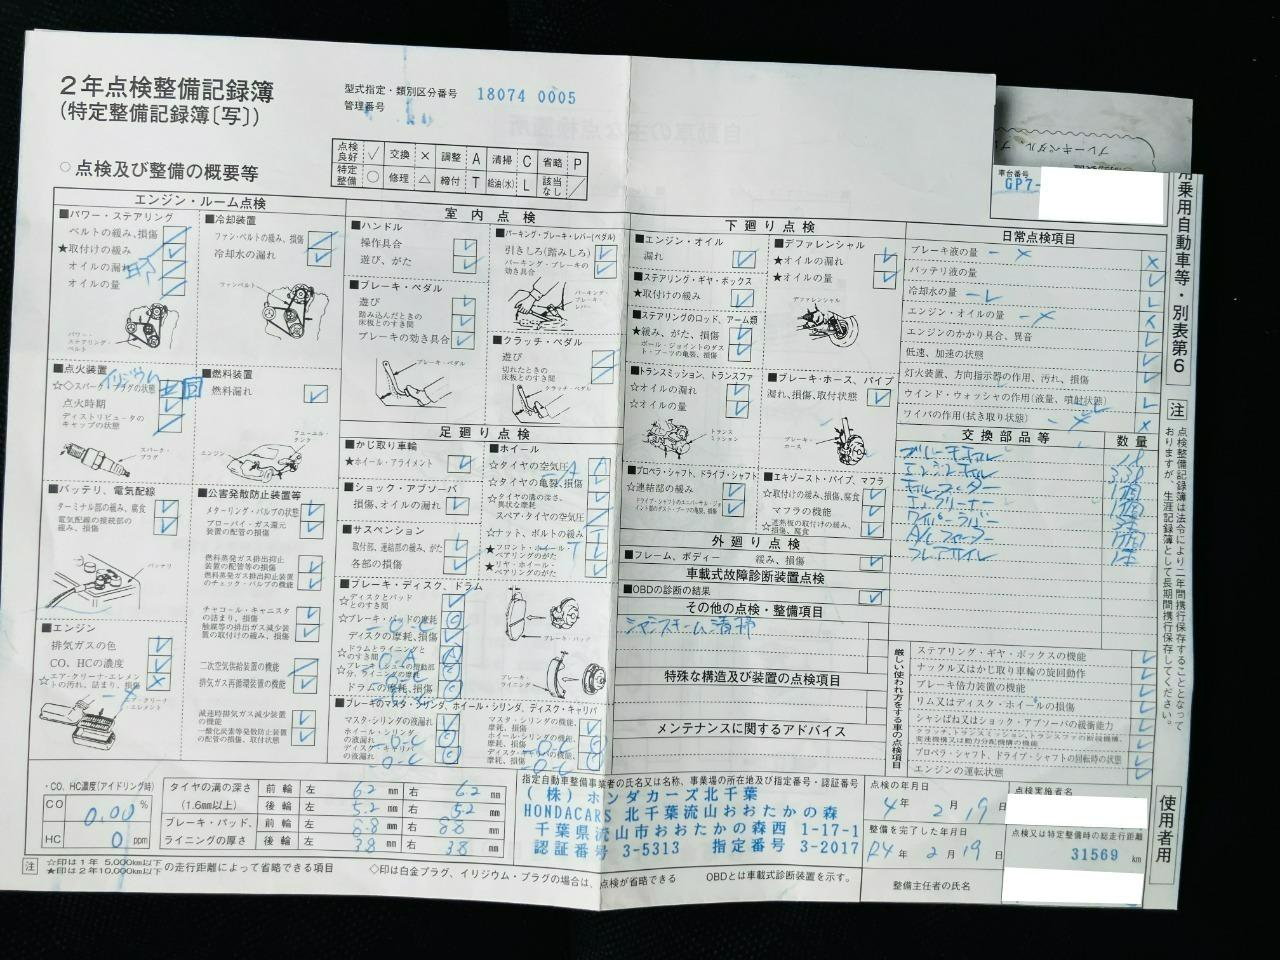 2年点検整備記録簿
(特定整備記録簿〔写〕)
型式指定・類別区分番号 18074 0005
管理番号
点検良好 ✓ 交換 × 調整 A 清掃 C 省略 P
特定整備 ○ 修理 △ 締付 T 給油(水) L 該当なし ╱
車台番号
GP7-
用乗用自動車等・別表第6
○点検及び整備の概要等
エンジン・ルーム点検
■パワー・ステアリング
ベルトの緩み、損傷
★取付けの緩み
オイルの漏れ
オイルの量
パワー・ステアリング・ベルト
■冷却装置
ファン・ベルトの緩み、損傷
冷却水の漏れ
ファンベルト
■点火装置
☆◇スパーク・プラグの状態
点火時期
ディストリビュータのキャップの状態
スパーク・プラグ
■燃料装置
燃料漏れ
フューエル・タンク
エンジン
■バッテリ、電気配線
ターミナル部の緩み、腐食
電気配線の接続部の緩み、損傷
バッテリ
■公害発散防止装置等
メターリング・バルブの状態
ブローバイ・ガス還元装置の配管の損傷
燃料蒸発ガス排出抑止装置の配管等の損傷
燃料蒸発ガス排出抑止装置のチェック・バルブの機能
チャコール・キャニスタの詰まり、損傷
触媒等の排出ガス減少装置の取付けの緩み、損傷
二次空気供給装置の機能
排気ガス再循環装置の機能
減速時排気ガス減少装置の機能
一酸化炭素等発散防止装置の配管の損傷、取付状態
■エンジン
排気ガスの色
CO、HCの濃度
☆エア・クリーナ・エレメントの汚れ、詰まり、損傷
エア・クリーナ・エレメント
室内点検
■ハンドル
操作具合
遊び、がた
■ブレーキ・ペダル
遊び
踏み込んだときの床板とのすき間
ブレーキの効き具合
ブレーキ・ペダル
■パーキング・ブレーキ・レバー(ペダル)
引きしろ(踏みしろ)
パーキング・ブレーキの効き具合
パーキング・ブレーキ・レバー
■クラッチ・ペダル
遊び
切れたときの床板とのすき間
クラッチ・ペダル
足廻り点検
■かじ取り車輪
★ホイール・アライメント
■ショック・アブソーバ
損傷、オイルの漏れ
■サスペンション
取付部、連結部の緩み、がた
各部の損傷
■ホイール
☆タイヤの空気圧 A
☆タイヤの亀裂、損傷
☆タイヤの溝の深さ、異状な摩耗
スペア・タイヤの空気圧
☆ナット、ボルトの緩み T
★フロント・ホイール・ベアリングのがた
★リヤ・ホイール・ベアリングのがた
■ブレーキ・ディスク、ドラム
☆ディスクとパッドとのすき間
☆ブレーキ・パッドの摩耗
ディスクの摩耗、損傷
☆ドラムとライニングとのすき間
☆ブレーキ・シューの摺動部分、ライニングの摩耗
ドラムの摩耗、損傷
ブレーキ・パッド
ブレーキ・ライニング
■ブレーキのマスタ・シリンダ、ホイール・シリンダ、ディスク・キャリパ
マスタ・シリンダの液漏れ
ホイール・シリンダの液漏れ
ディスク・キャリパの液漏れ
マスタ・シリンダの機能、摩耗、損傷
ホイール・シリンダの機能、摩耗、損傷
ディスク・キャリパの機能、摩耗、損傷
下廻り点検
■エンジン・オイル
漏れ
■ステアリング・ギヤ・ボックス
★取付けの緩み
■ステアリングのロッド、アーム類
★緩み、がた、損傷
ボール・ジョイントのダスト・ブーツの亀裂、損傷
■トランスミッション、トランスファ
☆オイルの漏れ
☆オイルの量
トランスミッション
■プロペラ・シャフト、ドライブ・シャフト
☆連結部の緩み
ドライブ・シャフトのユニバーサル・ジョイント部のダスト・ブーツの亀裂、損傷
■デファレンシャル
★オイルの漏れ
★オイルの量
デファレンシャル
■ブレーキ・ホース、パイプ
漏れ、損傷、取付状態
ブレーキ・ホース
■エキゾースト・パイプ、マフラ
☆取付けの緩み、損傷、腐食
マフラの機能
☆遮熱板の取付けの緩み、損傷、腐食
外廻り点検
■フレーム、ボディー 緩み、損傷
車載式故障診断装置点検
■OBDの診断の結果
その他の点検・整備項目
特殊な構造及び装置の点検項目
メンテナンスに関するアドバイス
日常点検項目
ブレーキ液の量 - ×
バッテリ液の量
冷却水の量 - L
エンジン・オイルの量 - ×
エンジンのかかり具合、異音
低速、加速の状態
灯火装置、方向指示器の作用、汚れ、損傷
ウインド・ウォッシャの作用(液量、噴射状態)
ワイパの作用(拭き取り状態)
交換部品等 数量
厳しい使われ方をする車の点検項目
ステアリング・ギヤ・ボックスの機能
ナックル又はかじ取り車輪の旋回動作
ブレーキ倍力装置の機能
リム又はディスク・ホイールの損傷
シャシばね又はショック・アブソーバの緩衝能力
クラッチ、トランスミッション、トランスファの断接機構、変速機構又は動力分配機構の機能
プロペラ・シャフト、ドライブ・シャフトの回転時の状態
エンジンの運転状態
注 点検整備記録簿は法令により二年間携行保存することとなっておりますが、生涯記録簿として長期間携行保存してください。
使用者用
・CO、HC濃度(アイドリング時)
CO 0.00 %
HC 0 ppm
タイヤの溝の深さ(1.6mm以上) 前輪 左 6.2 mm 右 6.2 mm
後輪 左 5.2 mm 右 5.2 mm
ブレーキ・パッド、ライニングの厚さ 前輪 左 8.8 mm 右 8.8 mm
後輪 左 3.8 mm 右 3.8 mm
指定自動車整備事業者の氏名又は名称、事業場の所在地及び指定番号・認証番号
(株)ホンダカーズ北千葉
HONDACARS 北千葉流山おおたかの森
千葉県流山市おおたかの森西 1-17-1
認証番号 3-5313 指定番号 3-2017
点検の年月日
4年 2月 19日
整備を完了した年月日
R4年 2月 19日
整備主任者の氏名
点検実施者名
点検又は特定整備時の総走行距離
31569 km
注 ☆印は1年 5,000km以下
★印は2年10,000km以下 の走行距離によって省略できる項目
◇印は白金プラグ、イリジウム・プラグの場合は、点検が省略できる OBDとは車載式診断装置を示す。